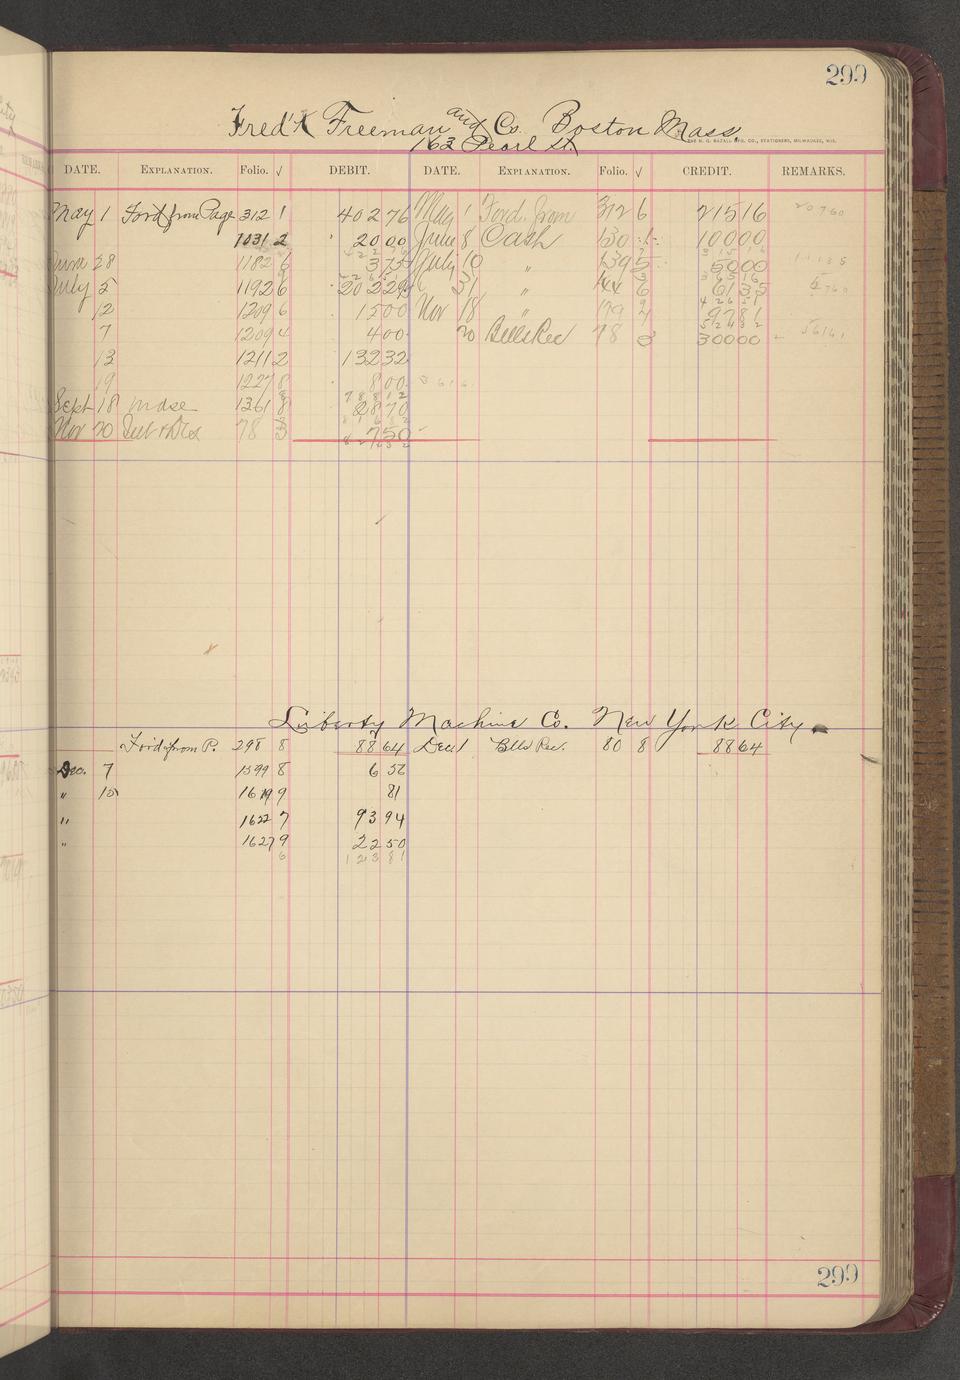 299
Fred'k Freeman and Co. Boston Mass.
163 Pearl St.
DATE. EXPLANATION. Folio. √ DEBIT. DATE. EXPLANATION. Folio. √ CREDIT. REMARKS.
May 1 Ford from Page 312 1 402 76 May 1 Ford. from 312 6 215 16 207 60
1031 2 20 00 June 8 Cash 130 100 00
28 1182 6 3 75 July 10 " 139 5 50 00
July 5 1192 6 202 29 31 " 6 61 35
12 1209 6 15 00 Nov 18 " 179 97 81
7 1209 4 4 00 20 Bills Rec 78 3 300 00 561 61
13 1211 2 132 32
19 1227 8 8 00
Sept 18 Mdse 1361 8 28 70
Nov 20 78 3 7 50
Liberty Machine Co. New York City.
Ford from P. 298 8 88 64 Dec 1 Bills Rec. 80 8 88 64
Dec. 7 1599 8 6 56
" 15 1619 9 81
" 1622 7 93 94
" 1627 9 22 50
6 123 81
299